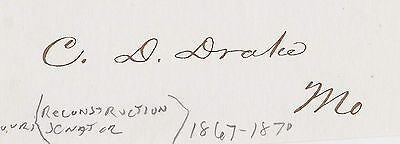 C. D. Drake
Mo
(RECONSTRUCTION
SENATOR) 1867-1870